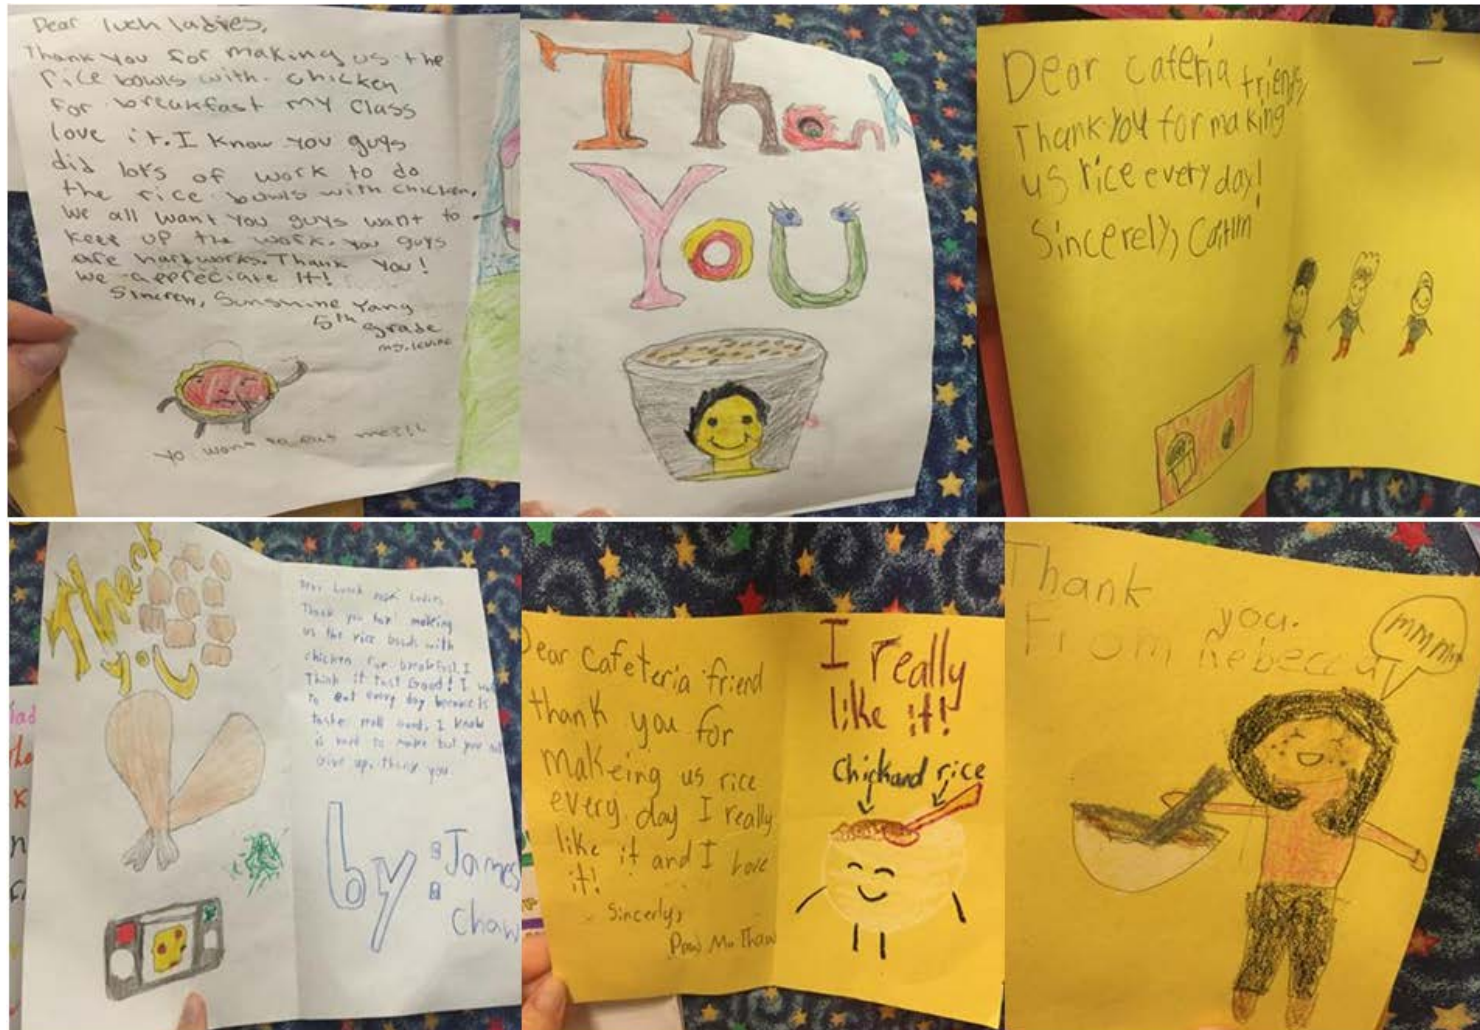 Dear luch ladies,
Thank you for making us the
rice bowls with chicken
for breakfast my class
love it. I know you guys
did lots of work to do
the rice bowls with chicken.
we all want you guys want to
keep up the work. you guys
are hardworks. Thank you!
we appreciate it!
Sincerely, Sunshine Yang
5th grade
ms. levine
yo want to eat me???
Thank
You
Dear cafeteria friends,
Thank you for making
us rice every day!
Sincerely, Caitlin
Thank
you
Dear Lunch Ladies.
Thank you for making
us the rice bowls with
chicken for breakfast. I
Think it tast Good! I
to eat every day because is
tastes good. I know
is hard to make but you
Give up, thank you.
by: James
Chaw
Dear cafeteria friend
thank you for
makeing us rice
every day I really
like it and I love
it!
Sincerly,
Paw Mu Thaw
I really
like it!
chickand rice
Thank
you.
From Rebecca
mmm